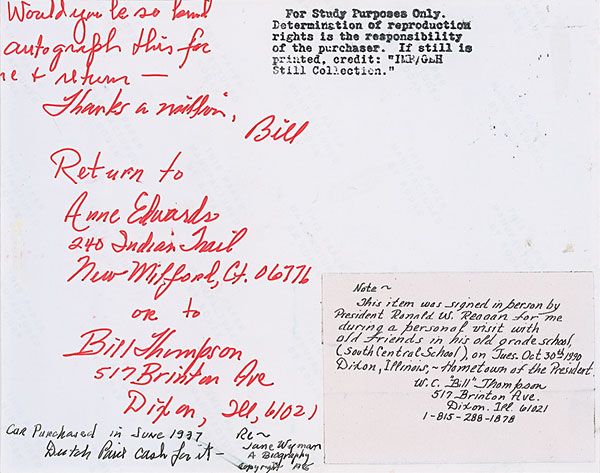 Would you be so kind
autograph this for
me & return —
Thanks a million,
Bill
For Study Purposes Only.
Determination of reproduction
rights is the responsibility
of the purchaser. If still is
printed, credit: "IMP/GEH
Still Collection."
Return to
Anne Edwards
240 Indian Trail
New Milford, Ct. 06776
or to
Bill Thompson
517 Brinton Ave
Dixon, Ill, 61021
Note ~
This item was signed in person by
President Ronald W. Reagan for me
during a personal visit with
old friends in his old grade school,
(South Central School), on Tues. Oct 30th 1990
Dixon, Illinois, ~ Hometown of the President
W.C. "Bill" Thompson
517 Brinton Ave.
Dixon. Ill. 61021
1-815-288-1878
Car Purchased in June 1937
Dutch Paid Cash for it —
Re ~
Jane Wyman
A Biography
Copyright 1985